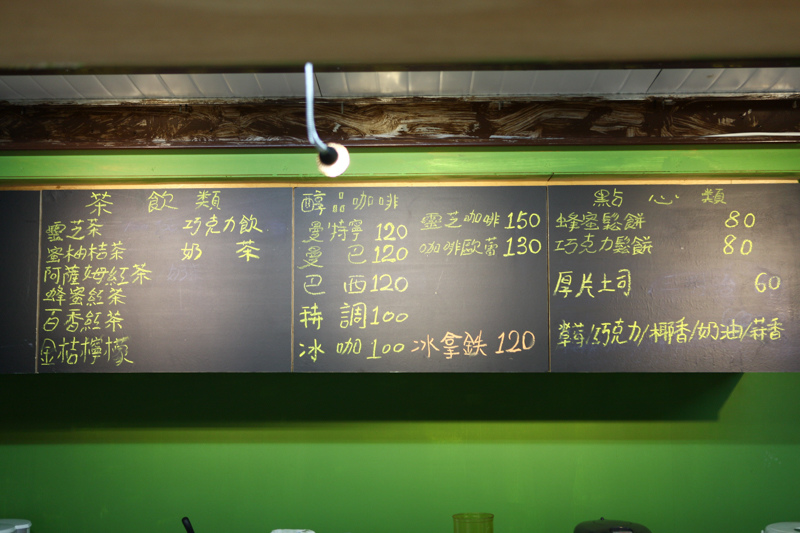 茶飲類
靈芝茶 巧克力飲
蜜柚桔茶 奶茶
阿薩姆紅茶
蜂蜜紅茶
百香紅茶
金桔檸檬
醇品咖啡
曼特寧 120
曼巴 120
巴西 120
特調 100
冰咖 100
靈芝咖啡 150
咖啡歐蕾 130
冰拿鉄 120
點心類
蜂蜜鬆餅 80
巧克力鬆餅 80
厚片土司 60
草莓/巧克力/椰香/奶油/蒜香